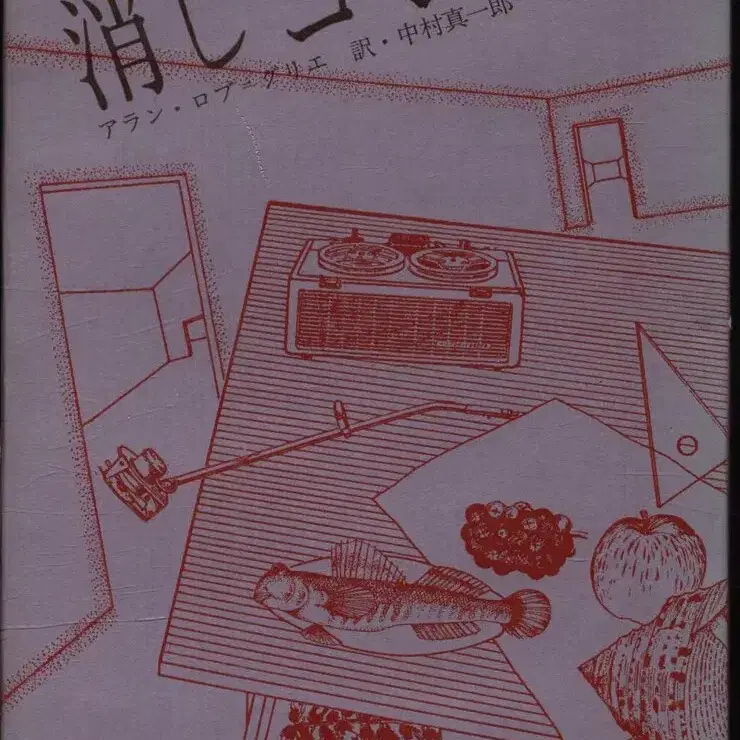 消しゴム
アラン・ロブ=グリエ 訳・中村真一郎